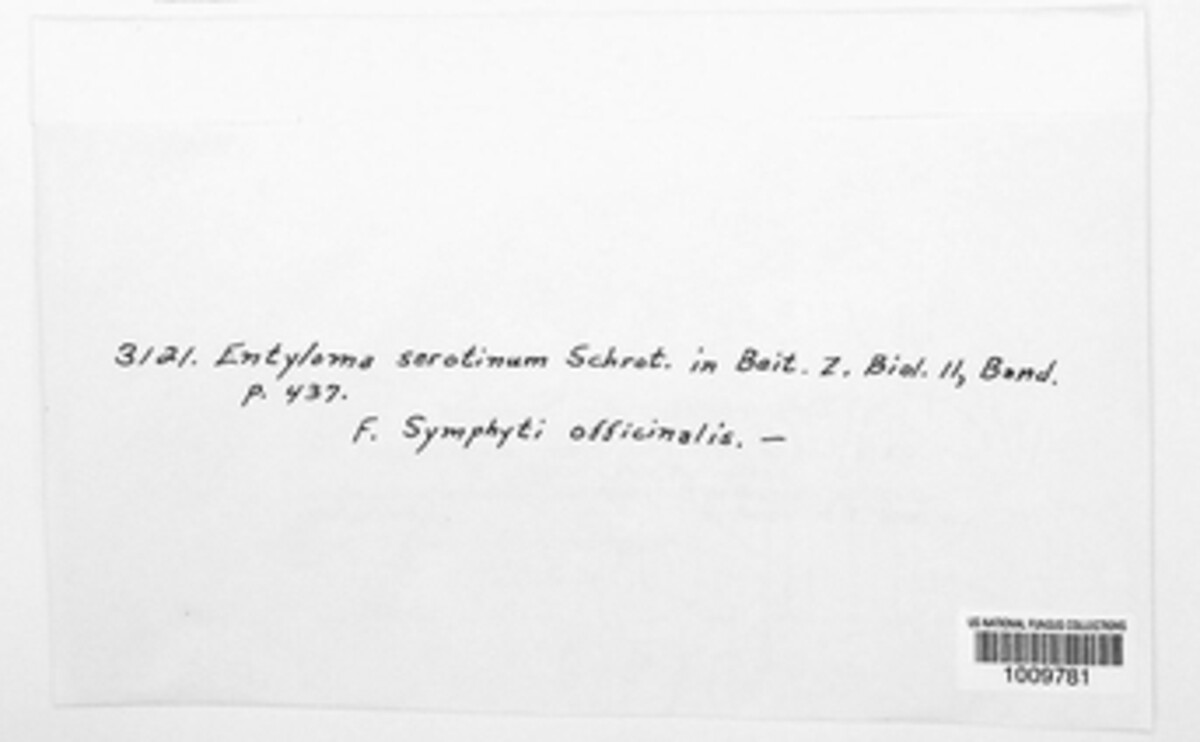 3121. Entyloma serotinum Schrot. in Beit. Z. Biol. II, Band.
p. 437.
F. Symphyti officinalis. —
US NATIONAL FUNGUS COLLECTIONS
1009781